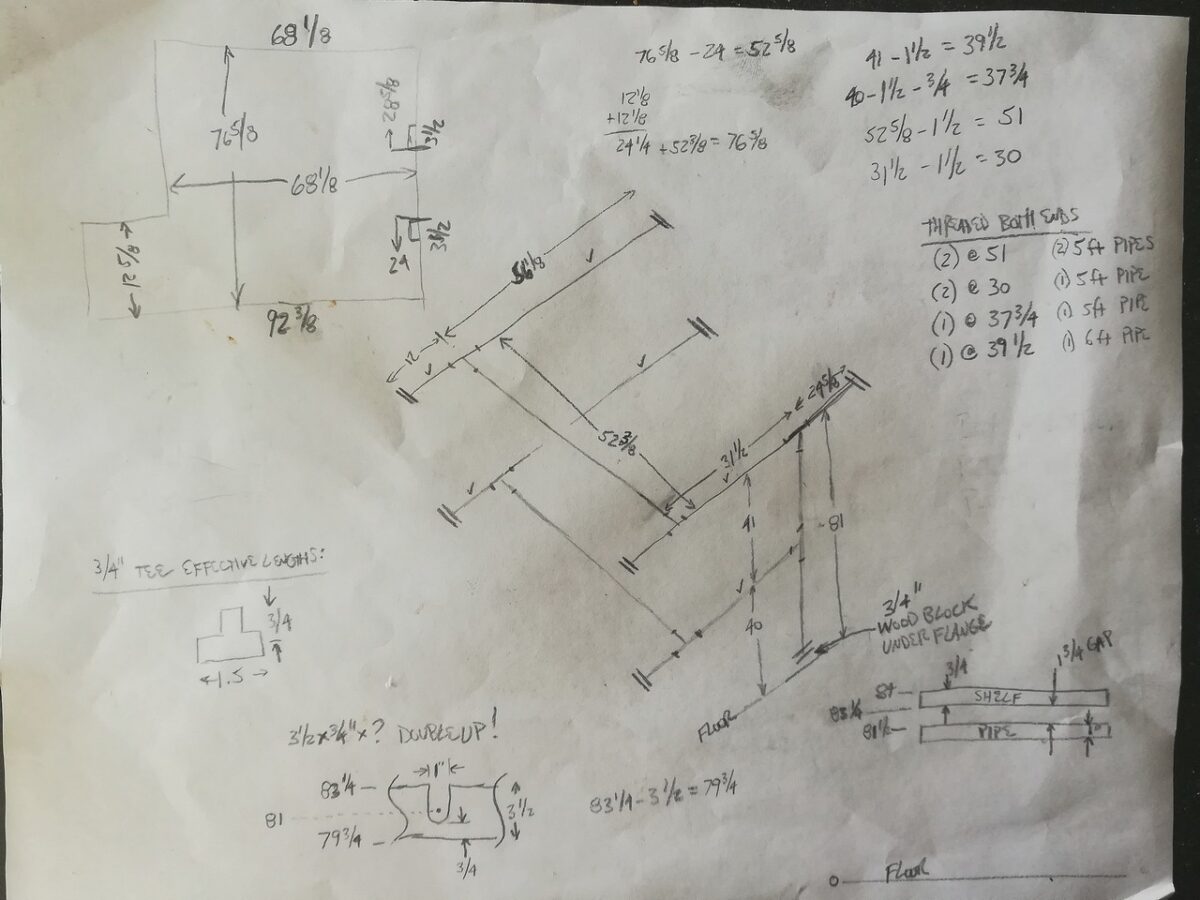 68 1/8
76 5/8
68 1/8
12 5/8
92 3/8
28 5/8
3 1/2
3 1/2
24
76 5/8 - 24 = 52 5/8
12 1/8
+12 1/8
24 1/4 + 52 3/8 = 76 5/8
41 - 1 1/2 = 39 1/2
40 - 1 1/2 - 3/4 = 37 3/4
52 5/8 - 1 1/2 = 51
31 1/2 - 1 1/2 = 30
THREADED BOTH ENDS
(2) @ 51 (2) 5 ft PIPES
(2) @ 30 (1) 5 ft PIPE
(1) @ 37 3/4 (1) 5 ft PIPE
(1) @ 39 1/2 (1) 6 ft PIPE
12
52 3/8
31 1/2
24 5/8
41
81
40
3/4"
WOOD BLOCK
UNDER FLANGE
FLOOR
3/4" TEE EFFECTIVE LENGTHS:
3/4
1.5
3 1/2 x 3/4" x ? DOUBLE UP!
83 1/4
1"
81
3 1/2
79 3/4
3/4
83 1/4 - 3 1/2 = 79 3/4
3/4
1 3/4 GAP
84
SHELF
83 1/4
81 1/2
PIPE
FLOOR
0